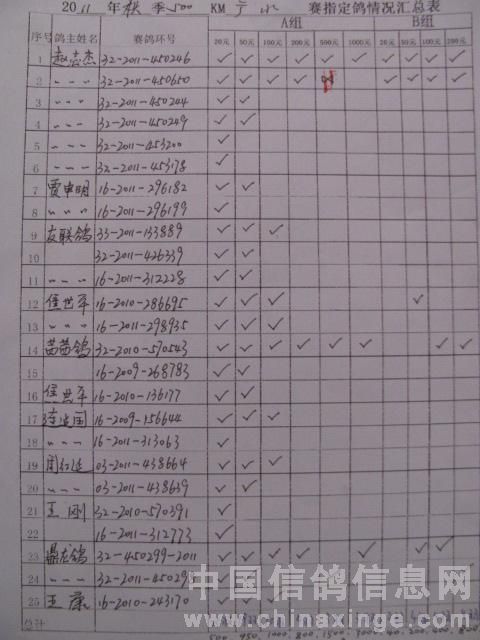 2011年秋季500KM 赛指定鸽情况汇总表
序号 鸽主姓名 赛鸽环号 A组 B组
20元 50元 100元 200元 500元 1000元 20元 50元 100元 200元
1 赵志杰 32-2011-450246 ✓ ✓ ✓ ✓ ✓ ✓ ✓ ✓ ✓ ✓
2 〃 〃 〃 32-2011-450650 ✓ ✓ ✓ ✓ ✓ ✓ ✓ ✓
3 〃 〃 〃 32-2011-450244 ✓ ✓
4 〃 〃 〃 32-2011-450249 ✓ ✓
5 〃 〃 〃 32-2011-453200 ✓
6 〃 〃 〃 32-2011-453178 ✓
7 贾申明 16-2011-296182 ✓ ✓
8 〃 〃 〃 16-2011-296199 ✓
9 友联鸽 33-2011-133889 ✓ ✓ ✓
10 32-2011-426339 ✓ ✓
11 〃 〃 〃 16-2011-312228 ✓ ✓
12 侯世平 16-2010-286695 ✓ ✓ ✓ ✓
13 〃 〃 〃 16-2011-298935 ✓ ✓ ✓
14 茜茜鸽 32-2010-570543 ✓ ✓ ✓ ✓ ✓ ✓ ✓ ✓
15 16-2009-268783 ✓ ✓
16 侯世平 16-2010-136177 ✓ ✓
17 16-2009-156644 ✓ ✓ ✓
18 〃 〃 〃 16-2011-313063 ✓
19 03-2011-438664 ✓ ✓ ✓
20 〃 〃 〃 03-2011-438639 ✓ ✓
21 王刚 32-2010-570391 ✓
22 16-2011-312773 ✓
23 鼎龙鸽 32-450299-2011 ✓ ✓ ✓ ✓ ✓ ✓ ✓
24 〃 〃 〃 32-2011-45029
25 王康 16-2010-243170 ✓ ✓ ✓
合计
500 950 1000 800 1500
中国信鸽信息网
www.chinaxinge.com